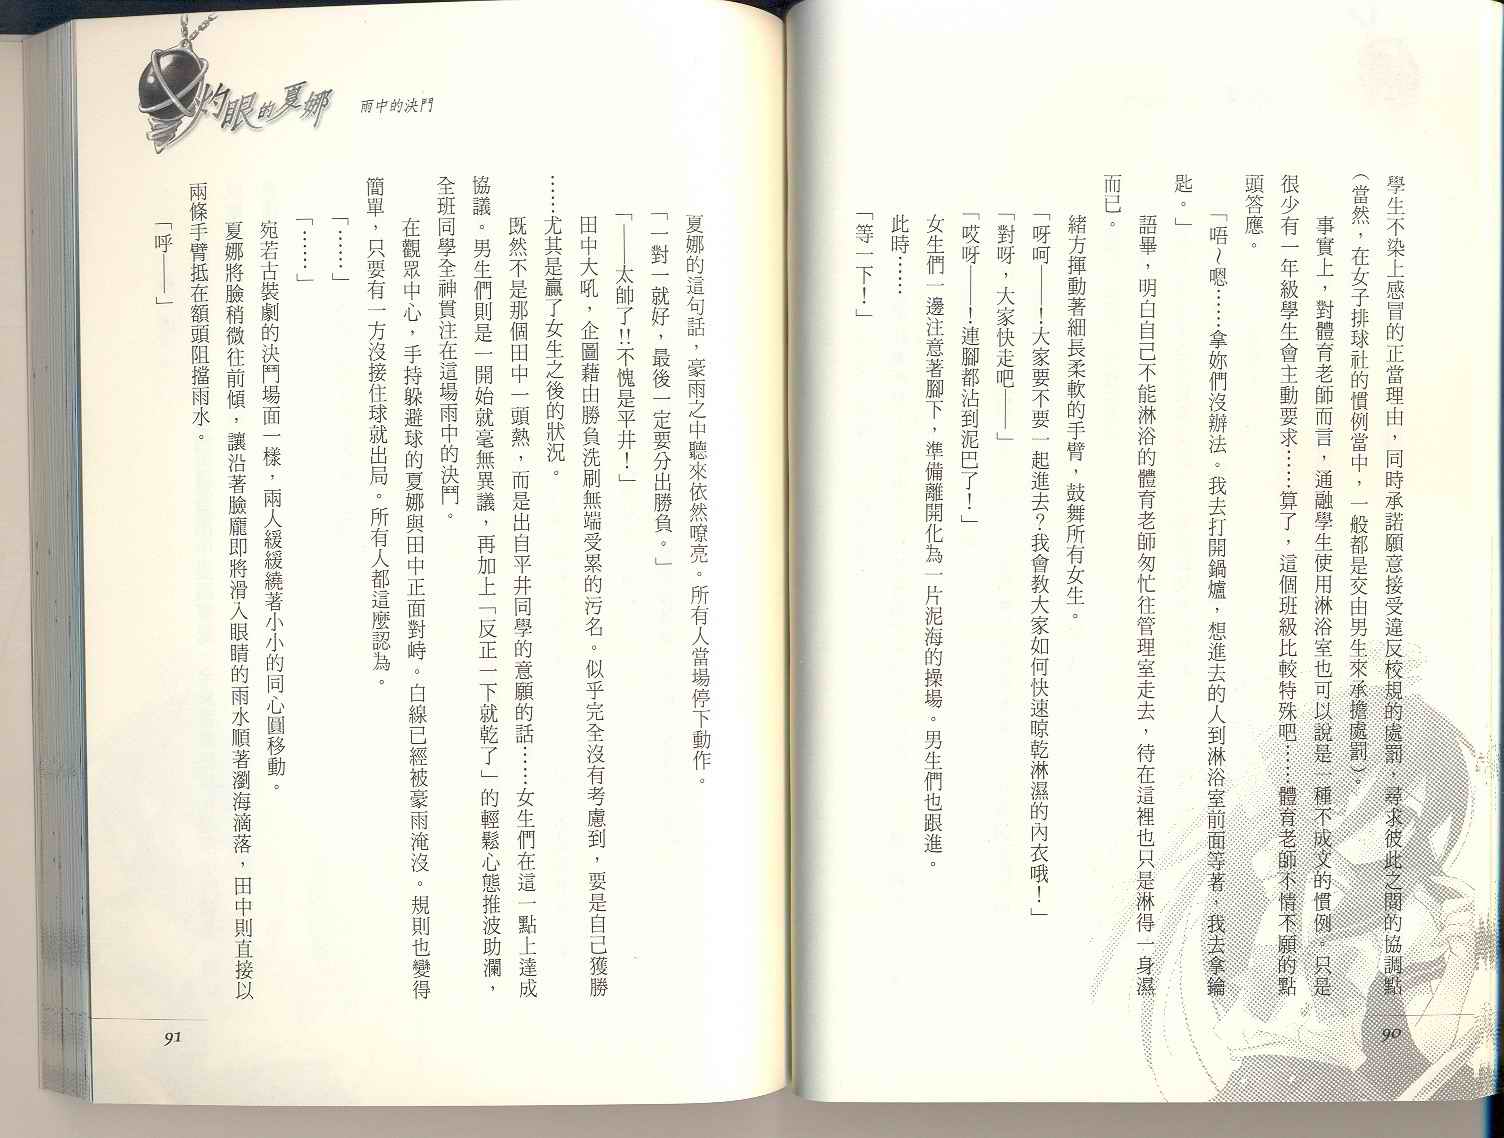 學生不染上感冒的正當理由，同時承諾願意接受違反校規的處罰，尋求彼此之間的協調點
（當然，在女子排球社的慣例當中，一般都是交由男生來承擔處罰）。
事實上，對體育老師而言，通融學生使用淋浴室也可以說是一種不成文的慣例。只是
很少有一年級學生會主動要求……算了，這個班級比較特殊吧……體育老師不情不願的點
頭答應。
「唔～嗯……拿妳們沒辦法。我去打開鍋爐，想進去的人到淋浴室前面等著，我去拿鑰
匙。」
語畢，明白自己不能淋浴的體育老師匆忙往管理室走去，待在這裡也只是淋得一身濕
而已。
緒方揮動著細長柔軟的手臂，鼓舞所有女生。
「呀呵——！大家要不要一起進去？我會教大家如何快速晾乾淋濕的內衣哦！」
「對呀，大家快走吧——」
「哎呀——！連腳都沾到泥巴了！」
女生們一邊注意著腳下，準備離開化為一片泥海的操場。男生們也跟進。
此時……
「等一下！」
90
灼眼的夏娜
雨中的決鬥
夏娜的這句話，豪雨之中聽來依然嘹亮。所有人當場停下動作。
「一對一就好，最後一定要分出勝負。」
「——太帥了!!不愧是平井！」
田中大吼，企圖藉由勝負洗刷無端受累的污名。似乎完全沒有考慮到，要是自己獲勝
……尤其是贏了女生之後的狀況。
既然不是那個田中一頭熱，而是出自平井同學的意願的話……女生們在這一點上達成
協議。男生們則是一開始就毫無異議，再加上「反正一下就乾了」的輕鬆心態推波助瀾，
全班同學全神貫注在這場雨中的決鬥。
在觀眾中心，手持躲避球的夏娜與田中正面對峙。白線已經被豪雨淹沒。規則也變得
簡單，只要有一方沒接住球就出局。所有人都這麼認為。
「……」
「……」
宛若古裝劇的決鬥場面一樣，兩人緩緩繞著小小的同心圓移動。
夏娜將臉稍微往前傾，讓沿著臉龐即將滑入眼睛的雨水順著瀏海滴落，田中則直接以
兩條手臂抵在額頭阻擋雨水。
「呼——」
91